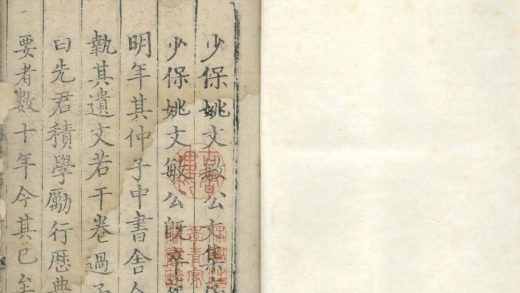 少保姚文敏公文集
少保姚文敏公既卒
明年其仲子中書舍人
執其遺文若干卷過予
曰先君積學勵行歷典
要者數十年今其已矣